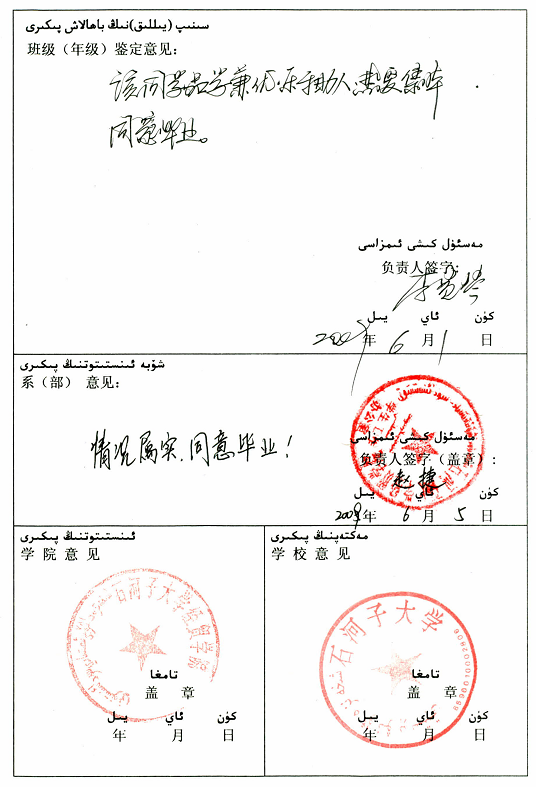 سىنىپ (يىللىق)نىڭ باھالاش پىكىرى
班级（年级）鉴定意见：
该同学品学兼优，乐于助人，热爱集体
同意毕业。
مەسئۇل كىشى ئىمزاسى
负责人签字：
يىل ئاي كۈن
年 6 月 1 日
شۆبە ئىنستىتوتنىڭ پىكىرى
系（部）意见：
情况属实，同意毕业！
مەسئۇل كىشى ئىمزاسى
负责人签字（盖章）：
赵捷
يىل ئاي كۈن
2009年 6 月 5 日
ئىنستىتوتنىڭ پىكىرى
学院意见
石河子大学经贸学院
تامغا
盖 章
يىل ئاي كۈن
年 月 日
مەكتەپنىڭ پىكىرى
学校意见
石河子大学
تامغا
盖 章
يىل ئاي كۈن
年 月 日